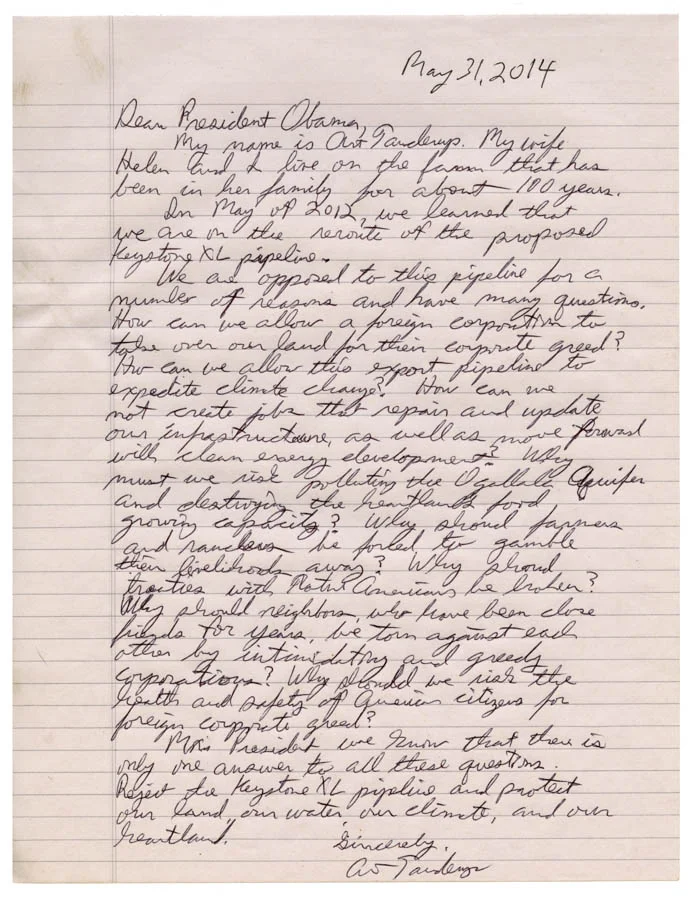 May 31, 2014
Dear President Obama,
My name is Art Tanderup. My wife
Helen and I live on the farm that has
been in her family for about 100 years.
In May of 2012, we learned that
we are on the reroute of the proposed
Keystone XL pipeline.
We are opposed to this pipeline for a
number of reasons and have many questions.
How can we allow a foreign corporation to
take over our land for their corporate greed?
How can we allow this export pipeline to
expedite climate change? How can we
not create jobs that repair and update
our infrastructure, as well as move forward
with clean energy development? Why
must we risk polluting the Ogallala Aquifer
and destroying the heartland's food
growing capacity? Why should farmers
and ranchers be forced to gamble
their livelihoods away? Why should
treaties with Native Americans be broken?
Why should neighbors, who have been close
friends for years, be torn against each
other by intimidatory and greedy
corporations? Why should we risk the
health and safety of American citizens for
foreign corporate greed?
President we know that there is
only one answer to all these questions.
Reject the Keystone XL pipeline and protect
our land, our water, our climate, and our
heartland.
Sincerely,
Art Tanderup